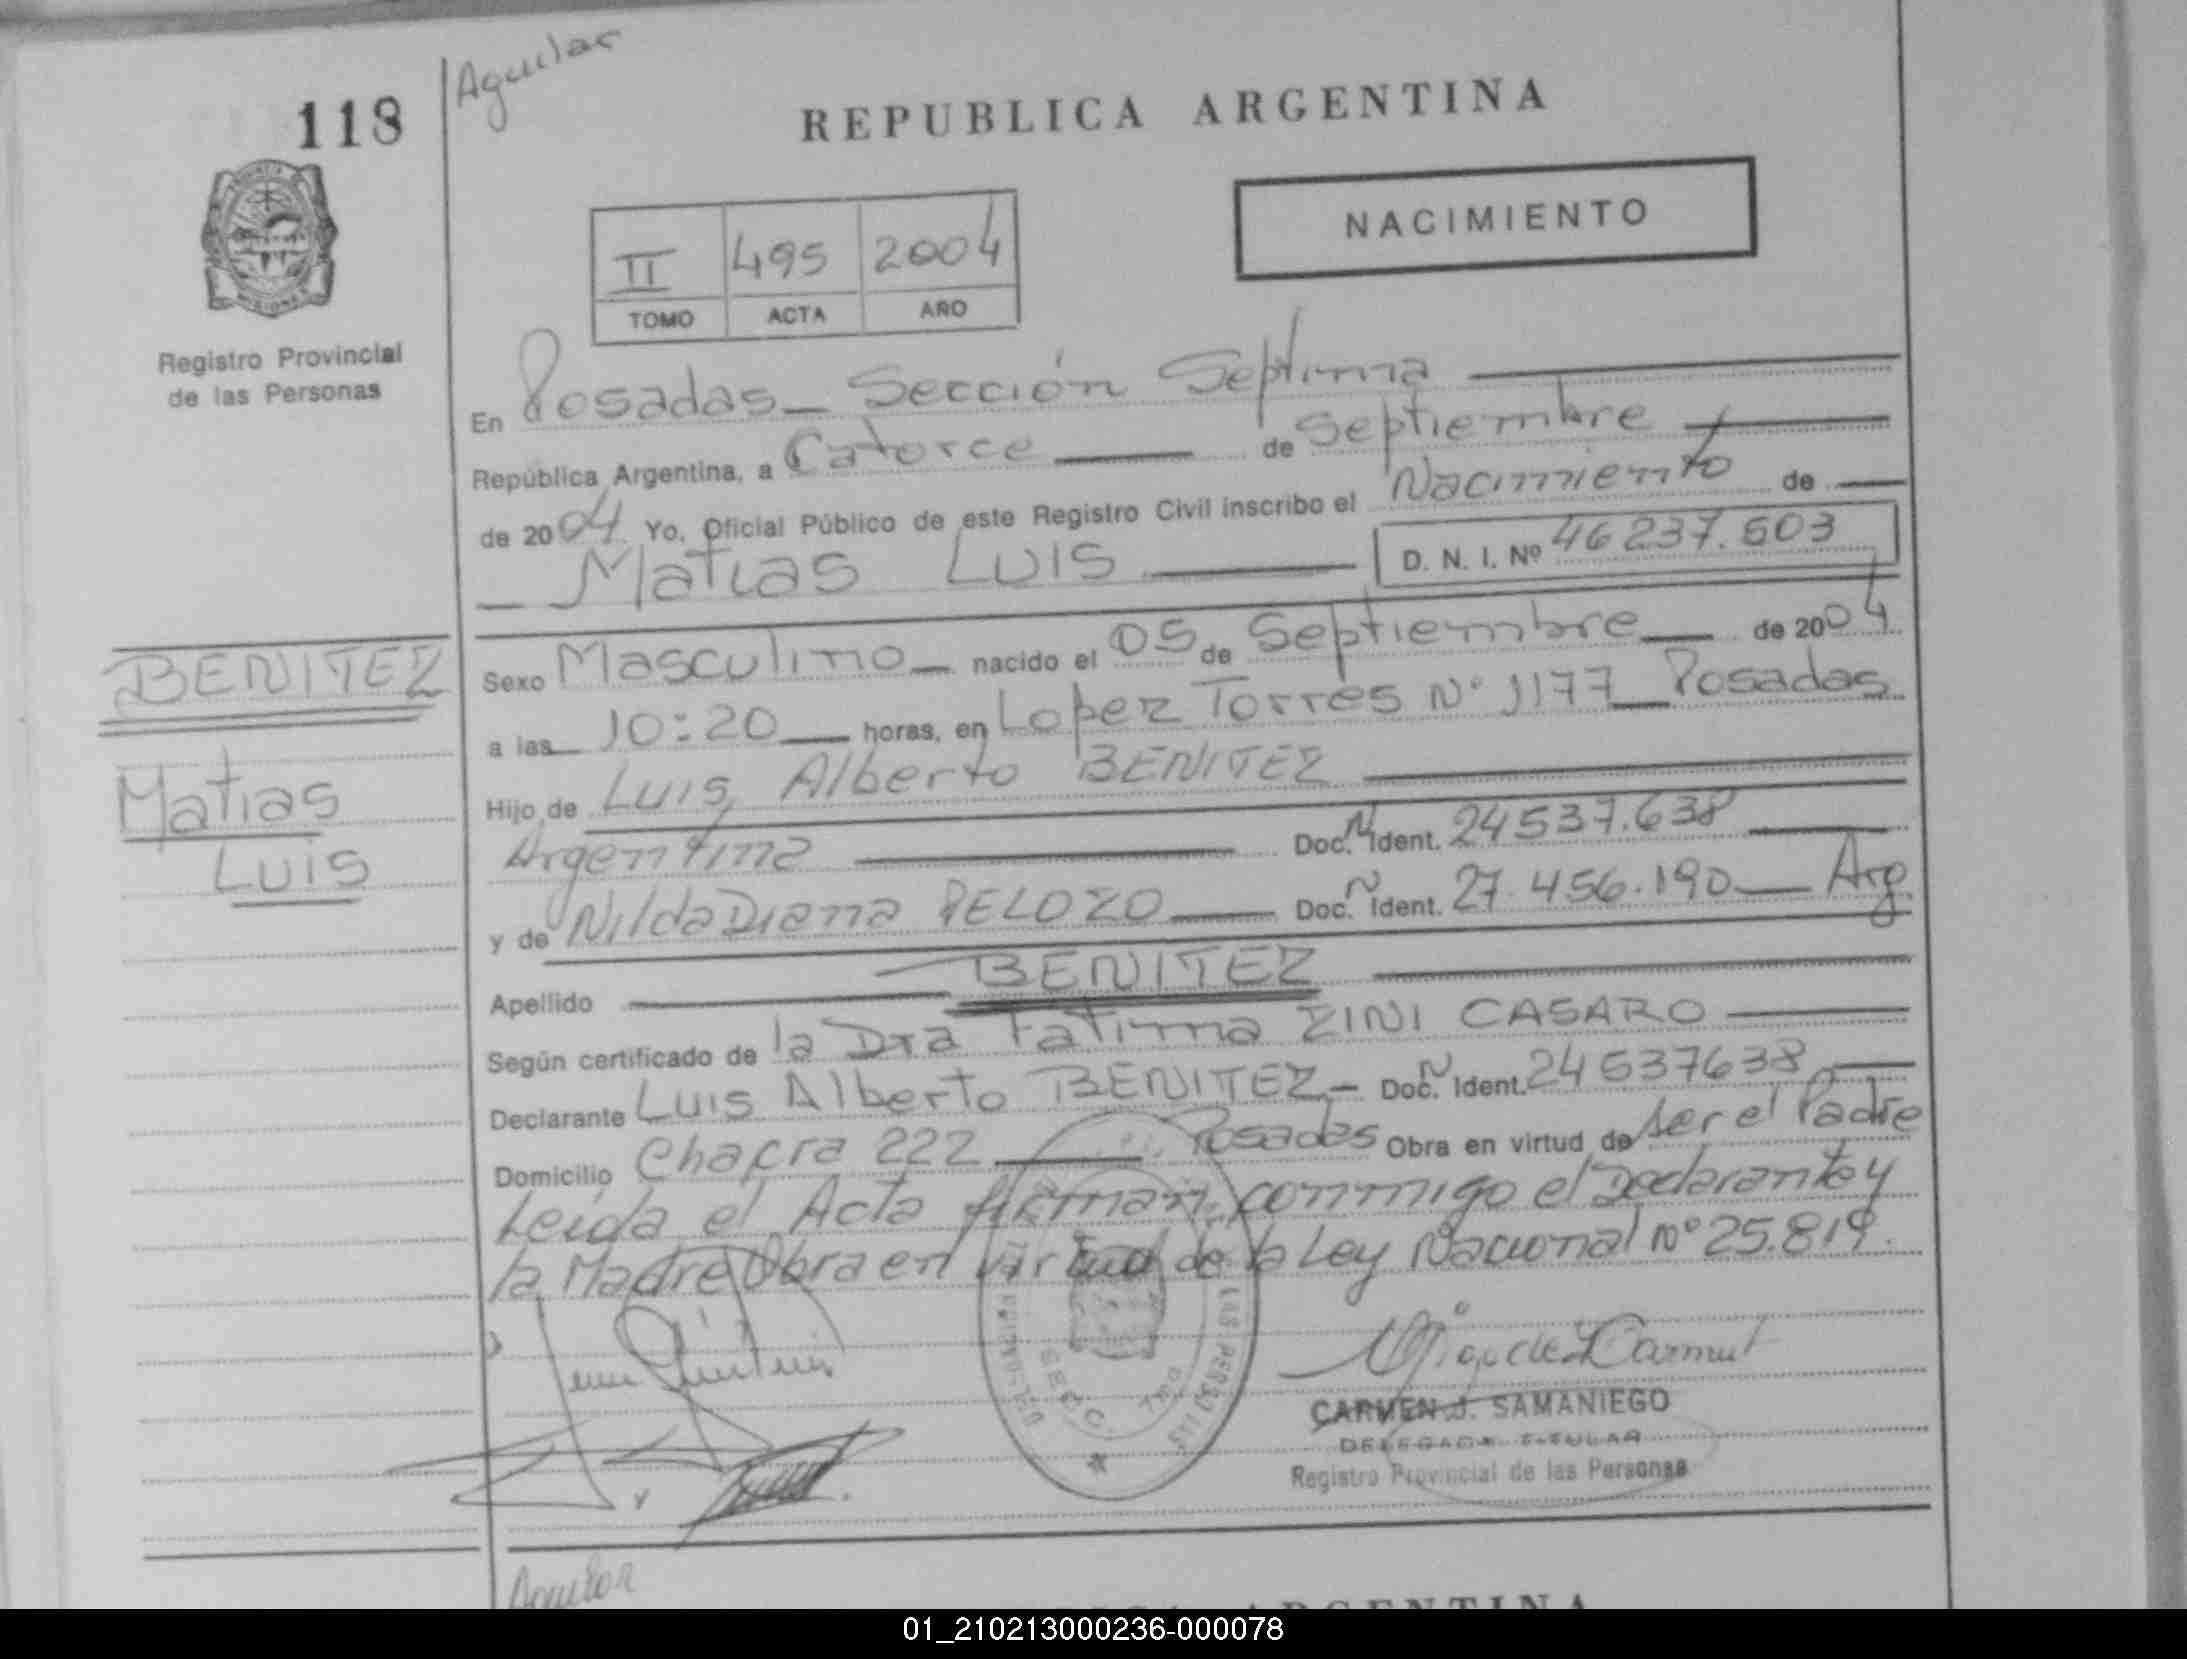 118
Aguilar
REPUBLICA ARGENTINA
NACIMIENTO
II 495 2004
TOMO ACTA AÑO
Registro Provincial
de las Personas
En Posadas - Sección Septima
República Argentina, a Catorce de Septiembre
de 2004 Yo, Oficial Público de este Registro Civil inscribo el Nacimiento de
Matias Luis D. N. I. Nº 46237.503
BENITEZ
Matias
Luis
Sexo Masculino nacido el 05 de Septiembre de 2004
a las 10:20 horas, en Lopez Torres Nº 1177 Posadas
Hijo de Luis Alberto BENITEZ
Argentina Doc. N Ident. 24537.638
y de Nilda Diana PELOZO Doc. N Ident. 27.456.190 Arg.
Apellido BENITEZ
Según certificado de la Dra Fatima ZINI CASARO
Declarante Luis Alberto BENITEZ - Doc. N Ident. 24537638
Domicilio Chacra 222 Posadas Obra en virtud de ser el Padre
Leida el Acta firman conmigo el Declarante y
la Madre Obra en virtud de la Ley Nacional Nº 25.819.
CARMEN J. SAMANIEGO
DELEGADA TITULAR
Registro Provincial de las Personas
LAS PERSONAS
Aguilar
ARGENTINA
01_210213000236-000078